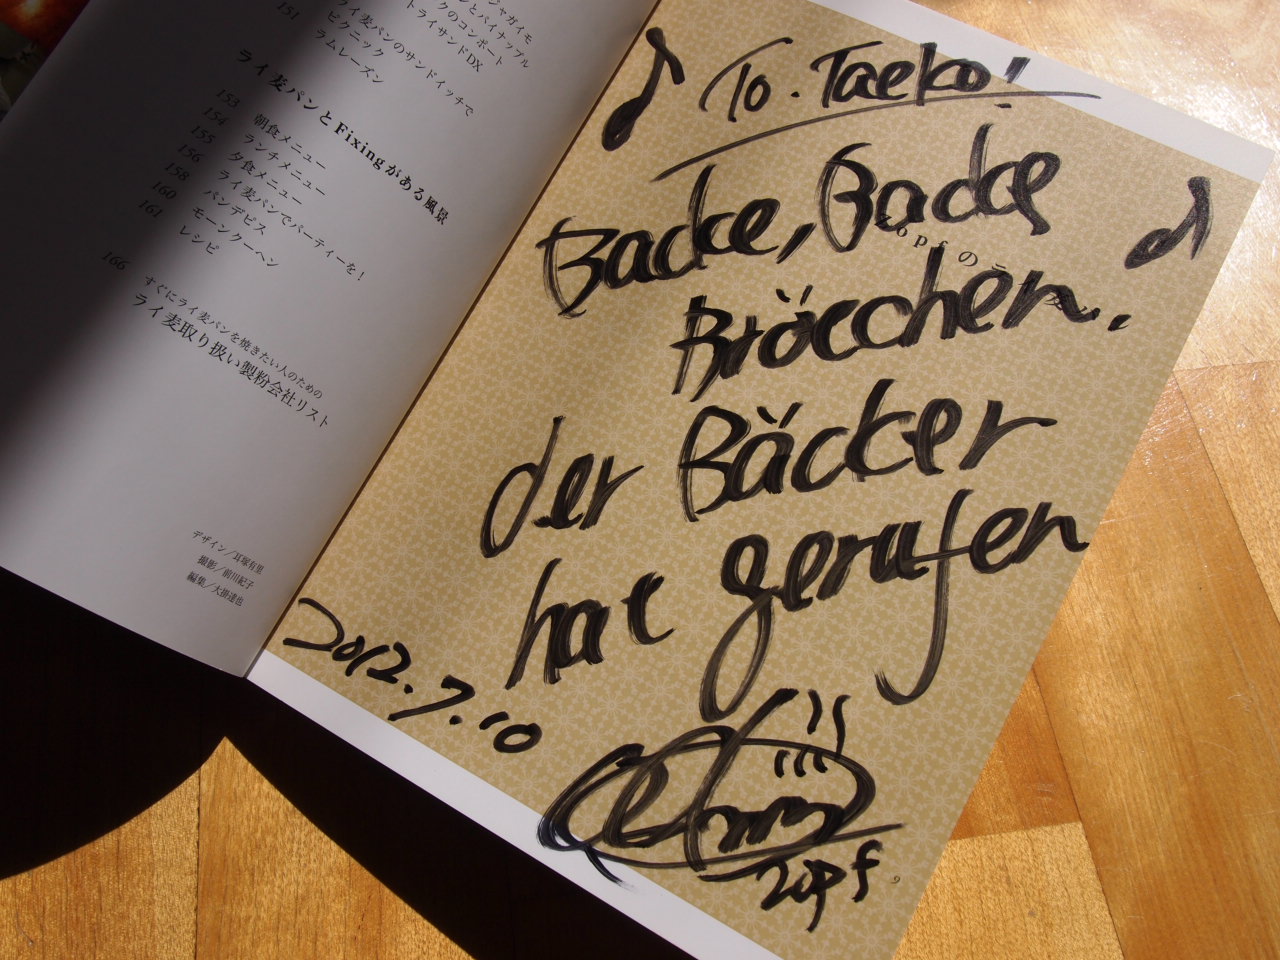 151
ジャガイモ
とパイナップル
クのコンポート
トライサンドDX
ライ麦パンのサンドイッチで
ピクニック
ラムレーズン
ライ麦パンとFixingがある風景
153 朝食メニュー
154 ランチメニュー
155 夕食メニュー
156 ライ麦パンでパーティーを！
158 パンデピス
160 モーンクーヘン
161 レシピ
166 すぐにライ麦パンを焼きたい人のための
ライ麦取り扱い製粉会社リスト
デザイン／耳塚有里
撮影／前川紀子
編集／大掛達也
♪ To. Taeko!
Backe, Backe ♪
opfの
Bröcchen.
der Bäcker
hat gerufen
2012.7.10
Zopf
9